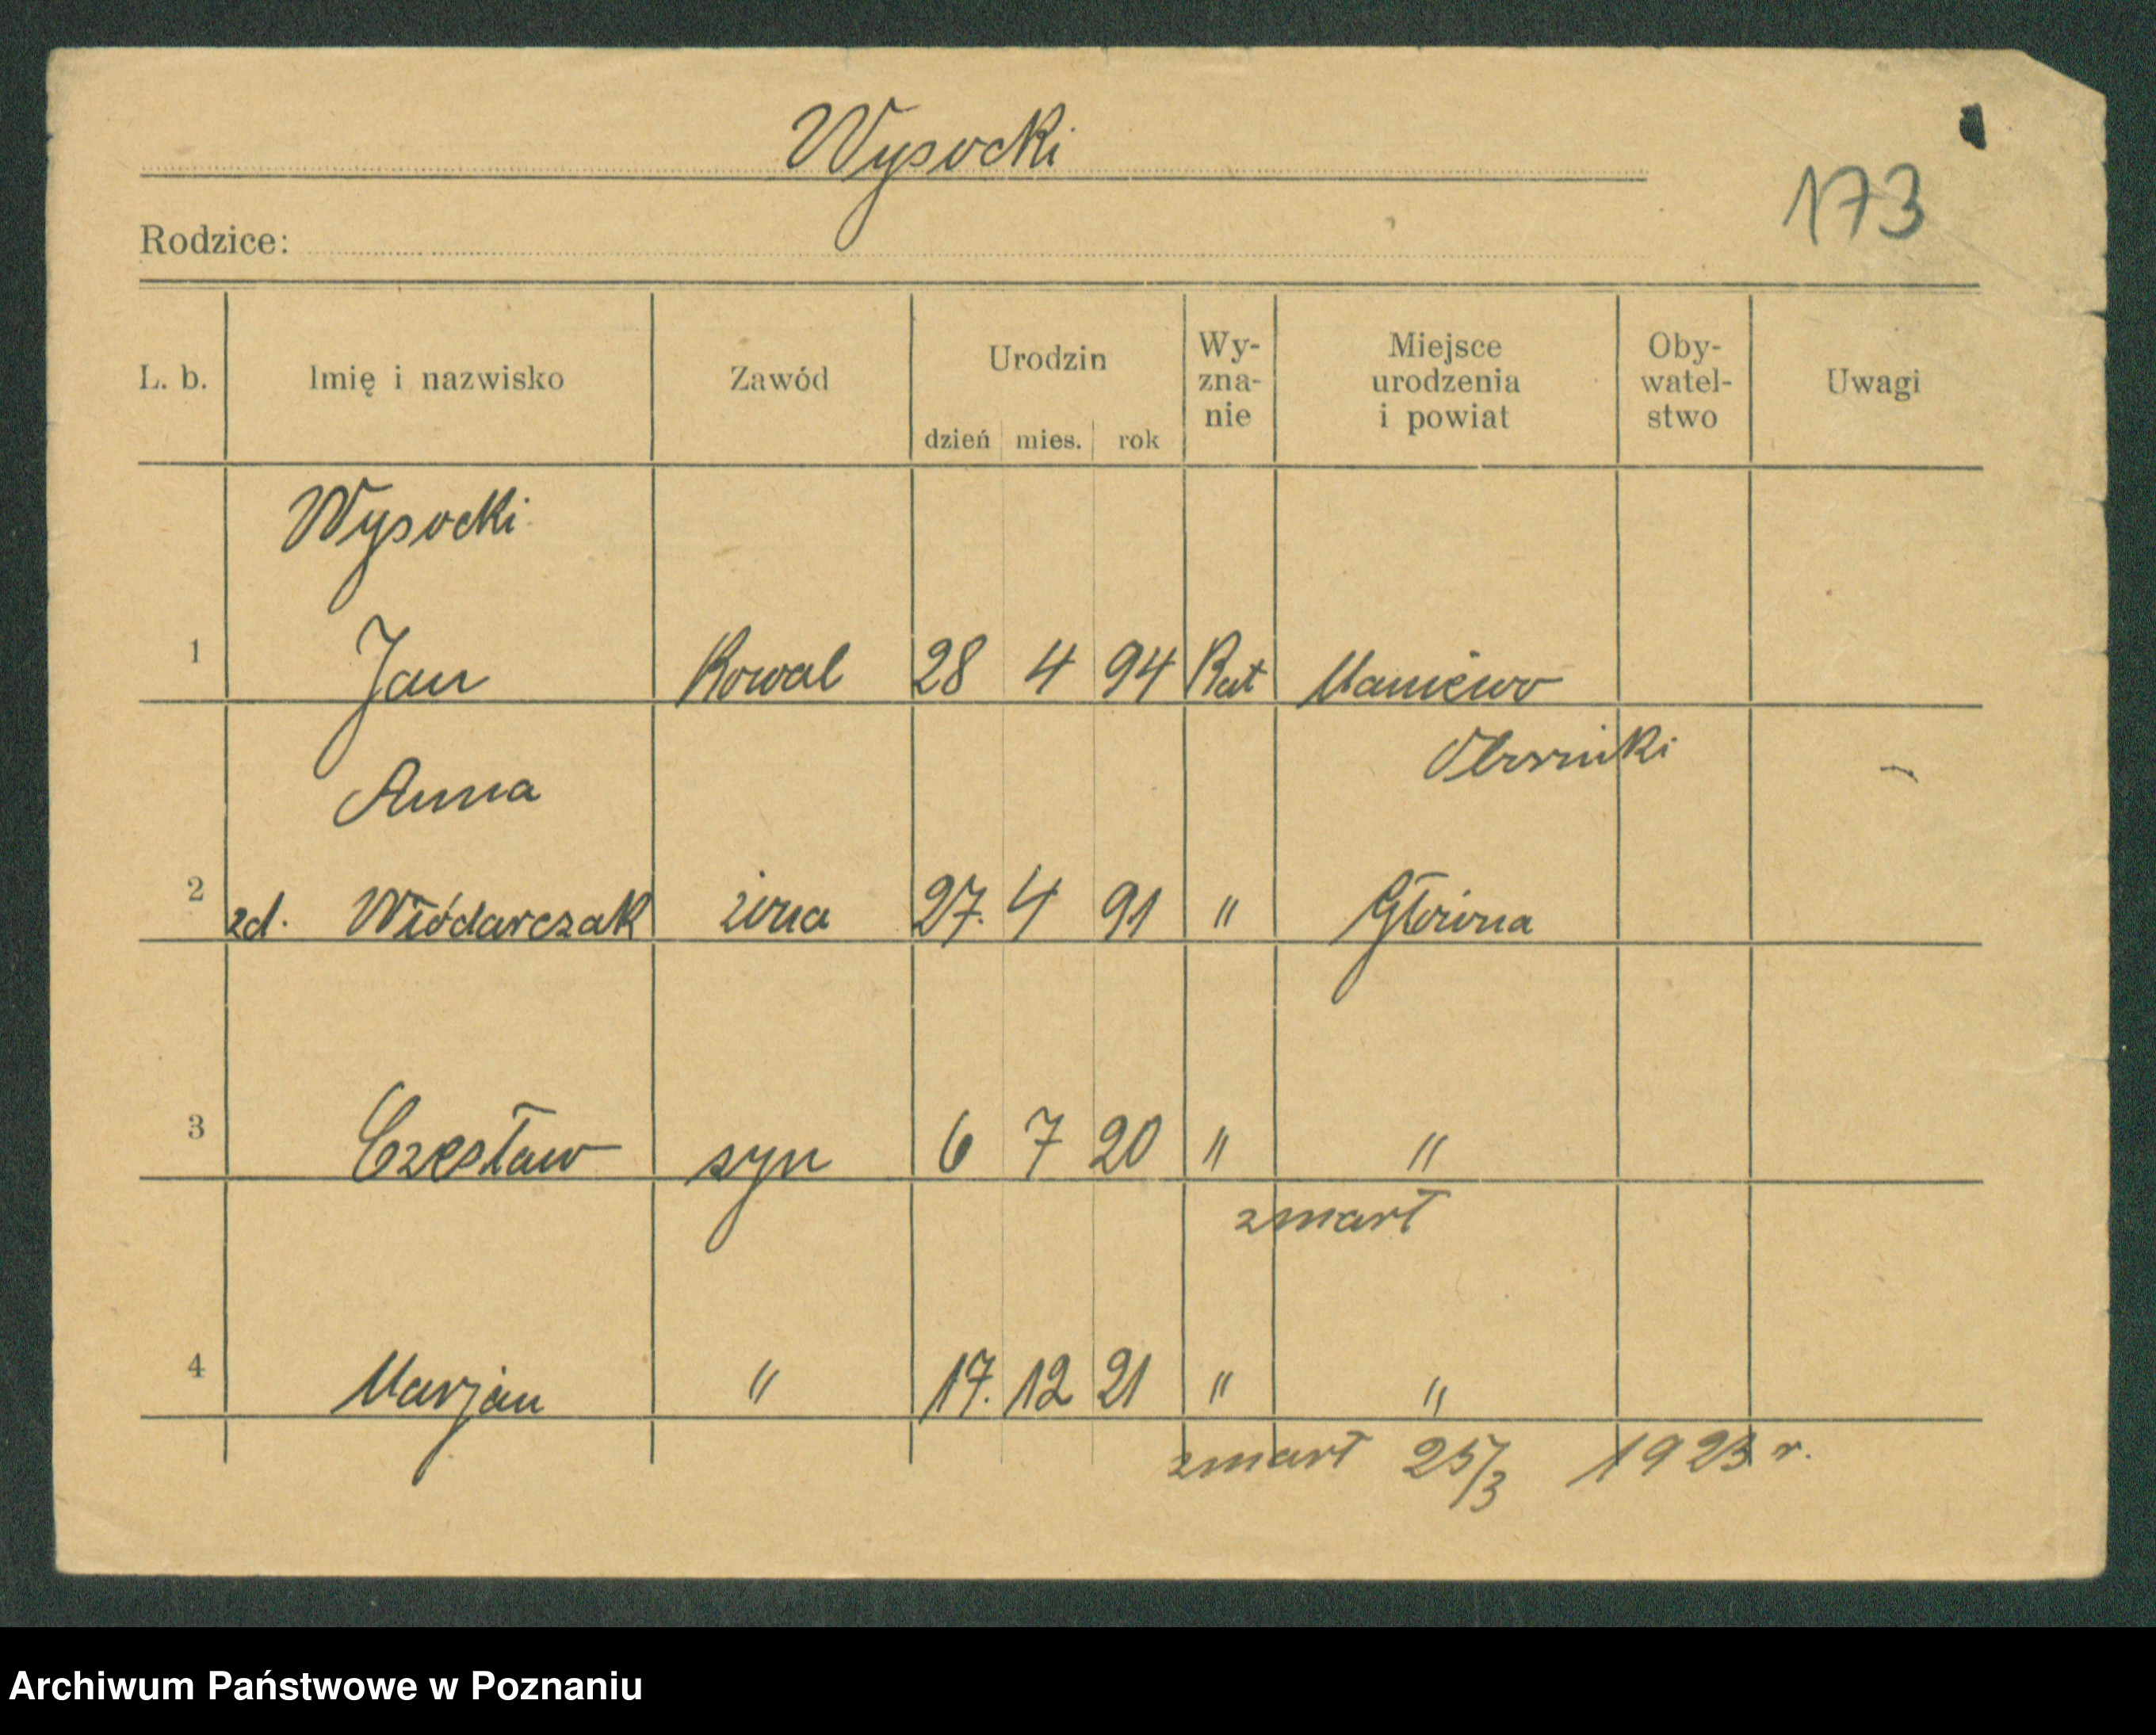 Wysocki
173
Rodzice:
L. b. Imię i nazwisko Zawód Urodzin dzień mies. rok Wy- zna- nie Miejsce urodzenia i powiat Oby- watel- stwo Uwagi
Wysocki
1 Jan Kowal 28 4 94 Kat Maniewo
Oborniki
Anna
2 zd. Włódarczak żona 27. 4 91 " Główna
3 Czesław syn 6 7 20 " "
zmarł
4 Marjan " 17. 12 21 " "
zmarł 25/3 1923 r.
Archiwum Państwowe w Poznaniu